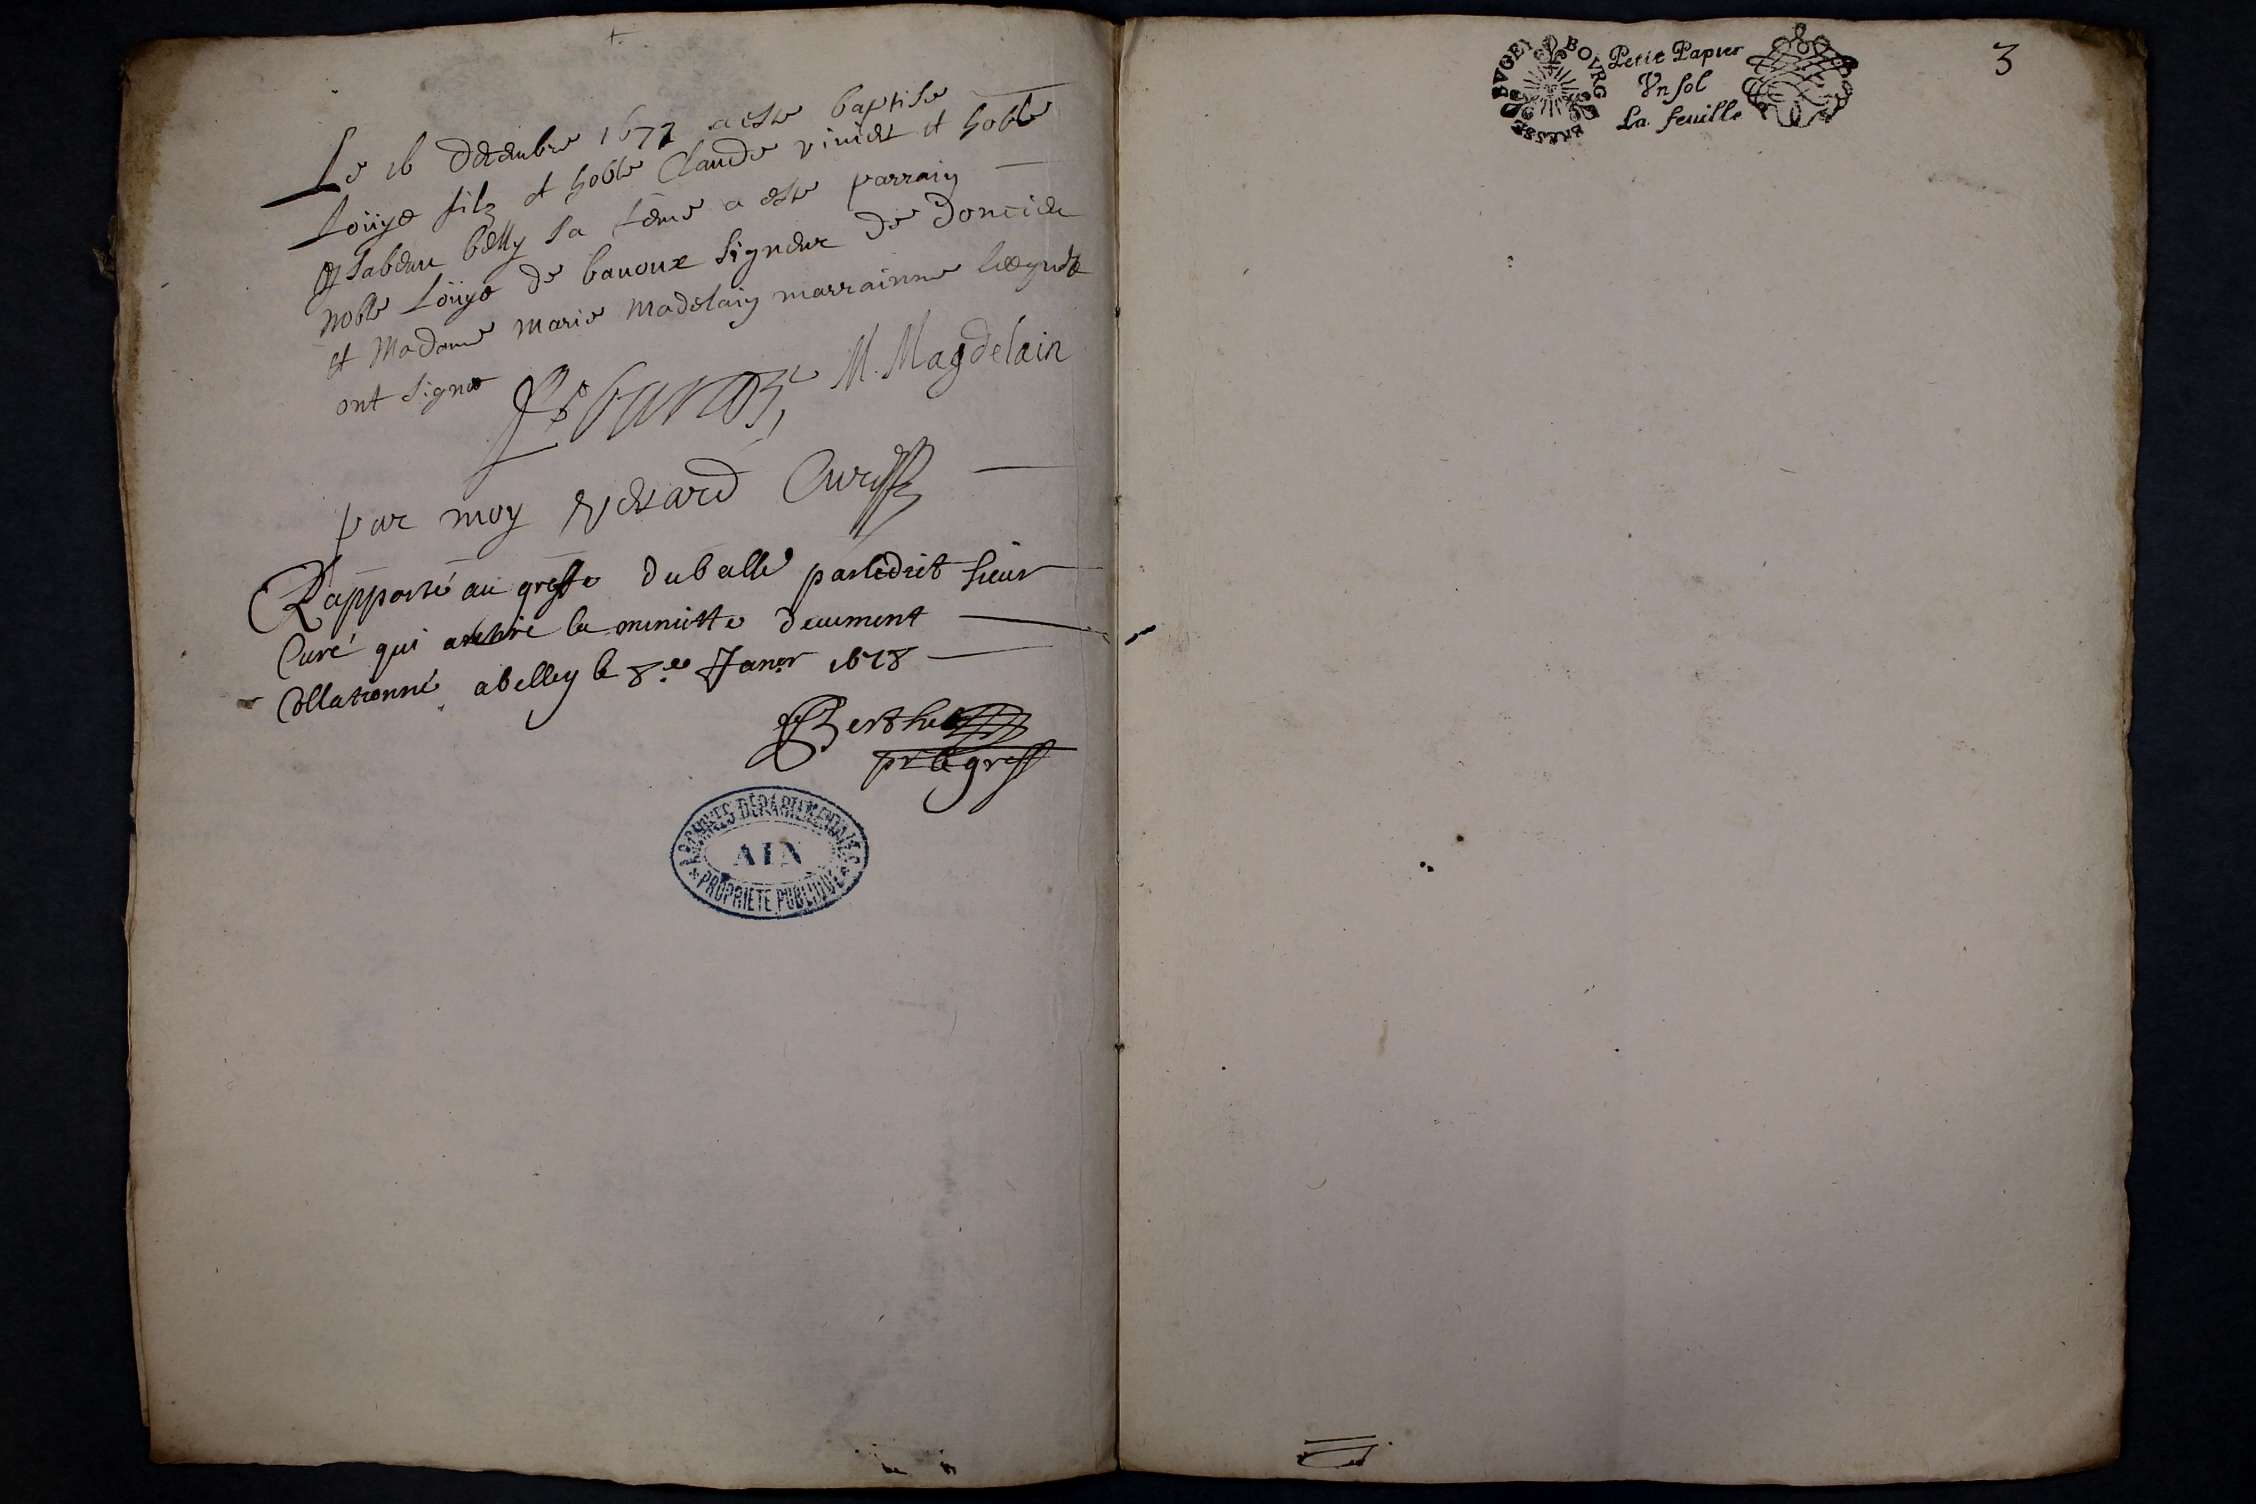 Le 16 decembre 1677 a este baptise
Loüys filz et noble Claude vinier et noble
ysabeau belly sa feme a este parrain
noble Loüys de bauoux signeur de doncieu
et Madame marie madelain marrainne lesquels
ont signe
M. Magdelain
par moy Curé
Rapporté au greffe du balle par ledict sieur
Curé qui a retiré la minutte deuement
Collationné a belley le 8.e Janer 1678
Berthet
pr le greff
ARCHIVES DÉPARTEMENTALES
AIN
PROPRIÉTÉ PUBLIQUE
BVGEY BOVRG BRESSE
Petit Papier
Vn sol
La feuille
3